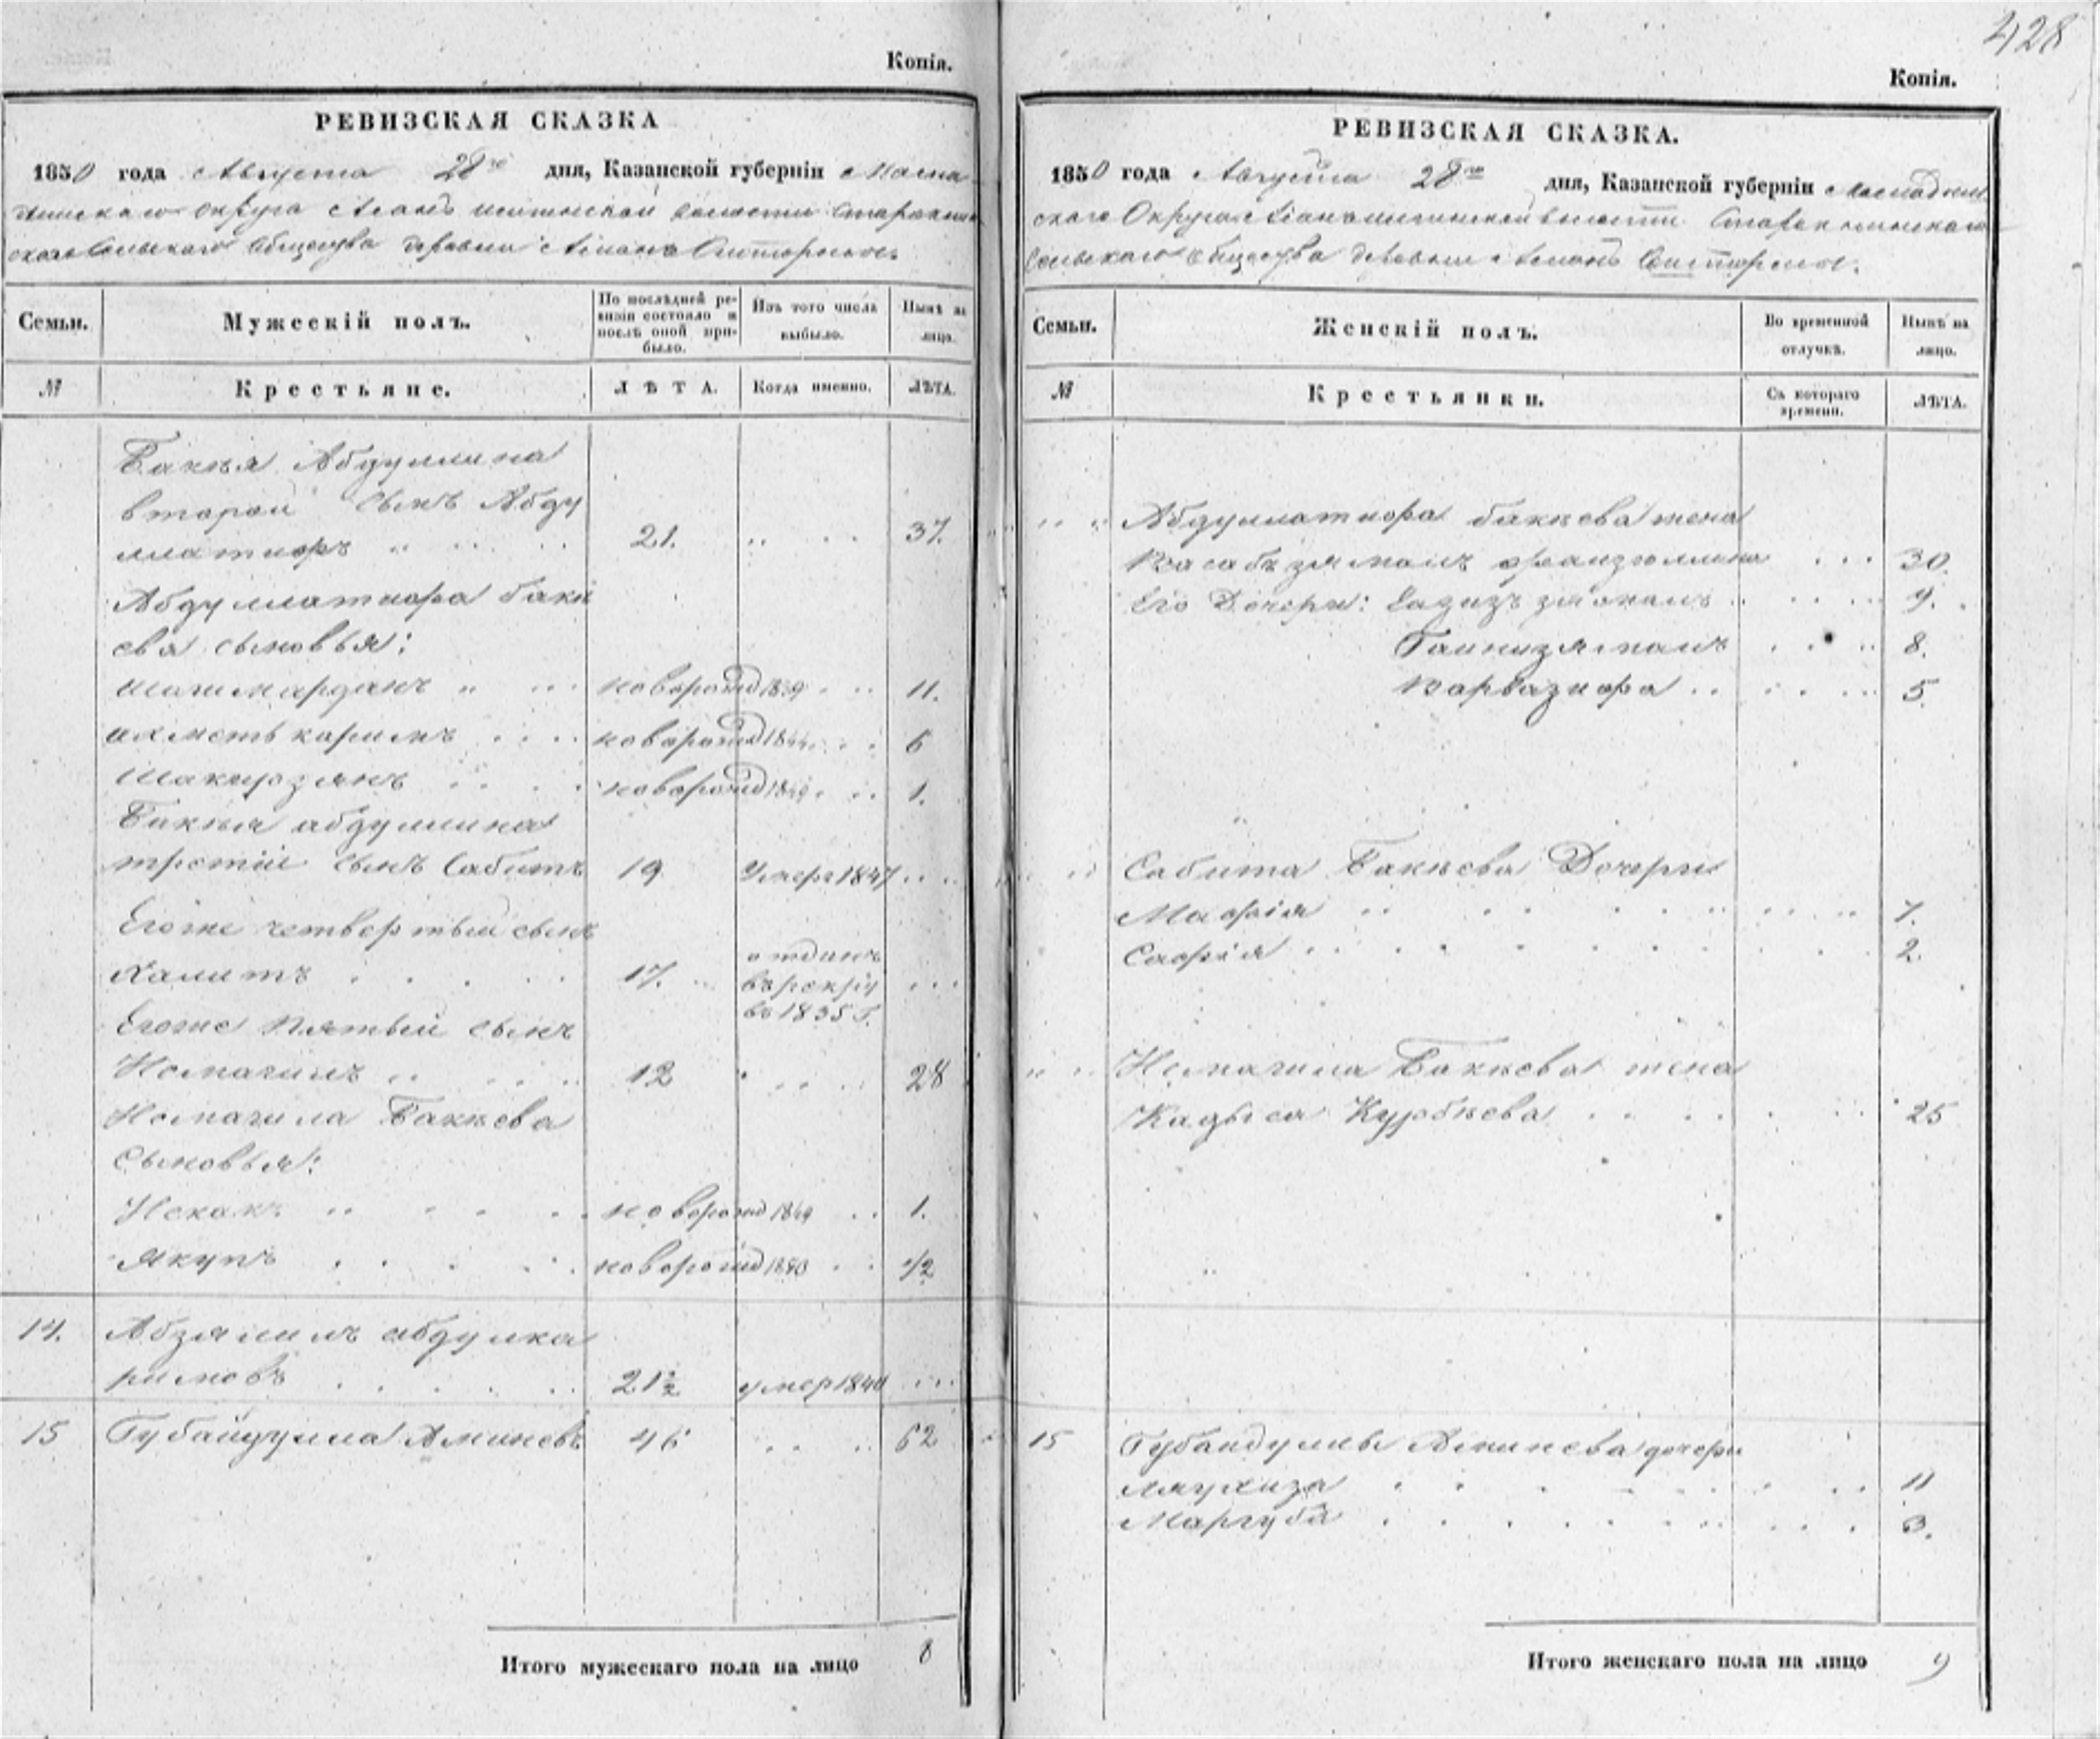 428
Копія.
РЕВИЗСКАЯ СКАЗКА
1850 года Августа 28го дня, Казанской губерніи Мама
дышскаго округа волости
Сельскаго Общества деревни
Семьи.
Мужескій полъ.
По послѣдней ре-
визіи состояло и
послѣ оной при-
было.
Изъ того числа
выбыло.
Нынѣ на
лицо.
№
Крестьяне.
ЛѢТА.
Когда именно.
ЛѢТА.
Бакѣя Абдуллина
второй сынъ Абду
21. 37.
Абдуллатифа Бакѣ
ева сыновья:
Шагимарданъ новорожд 1839 11.
Ахметь каримъ новорожд 1844 6
Шакирзянъ новорожд 1849 1.
Бакѣя абдуллина
третій сынъ Сабитъ 19 Умеръ 1847
Его же четвертый сынъ
Халитъ 17. отданъ
въ рекруты
въ 1835 г.
Его же пятый сынъ
Исмагилъ 12 28
Исмагила Бакѣева
Сыновья:
Исхакъ новорожд 1849 1.
Якупъ новорожд 1850 1/2
14. Абзялилъ абдулка
римовъ 21 1/2 умер 1840
15 Губайдулла Аминевъ 46 62
Итого мужескаго пола на лицо 8
Копія.
РЕВИЗСКАЯ СКАЗКА.
1850 года Августа 28го дня, Казанской губерніи Мамадыш
скаго Округа волости
Сельскаго Общества деревни
Семьи.
Женскій полъ.
Во временной
отлучкѣ.
Нынѣ на
лицо.
№
Крестьянки.
Съ котораго
времени.
ЛѢТА.
Абдуллатифа бакѣева жена
30.
Его Дочери: 9.
8.
5.
Сабита Бакѣева Дочери
Мафія 7.
Сафія 2.
Исмагила Бакѣева жена
Курбѣева 25
15 Губайдуллы Аминева дочери
11
Маргуба 3.
Итого женскаго пола на лицо 9